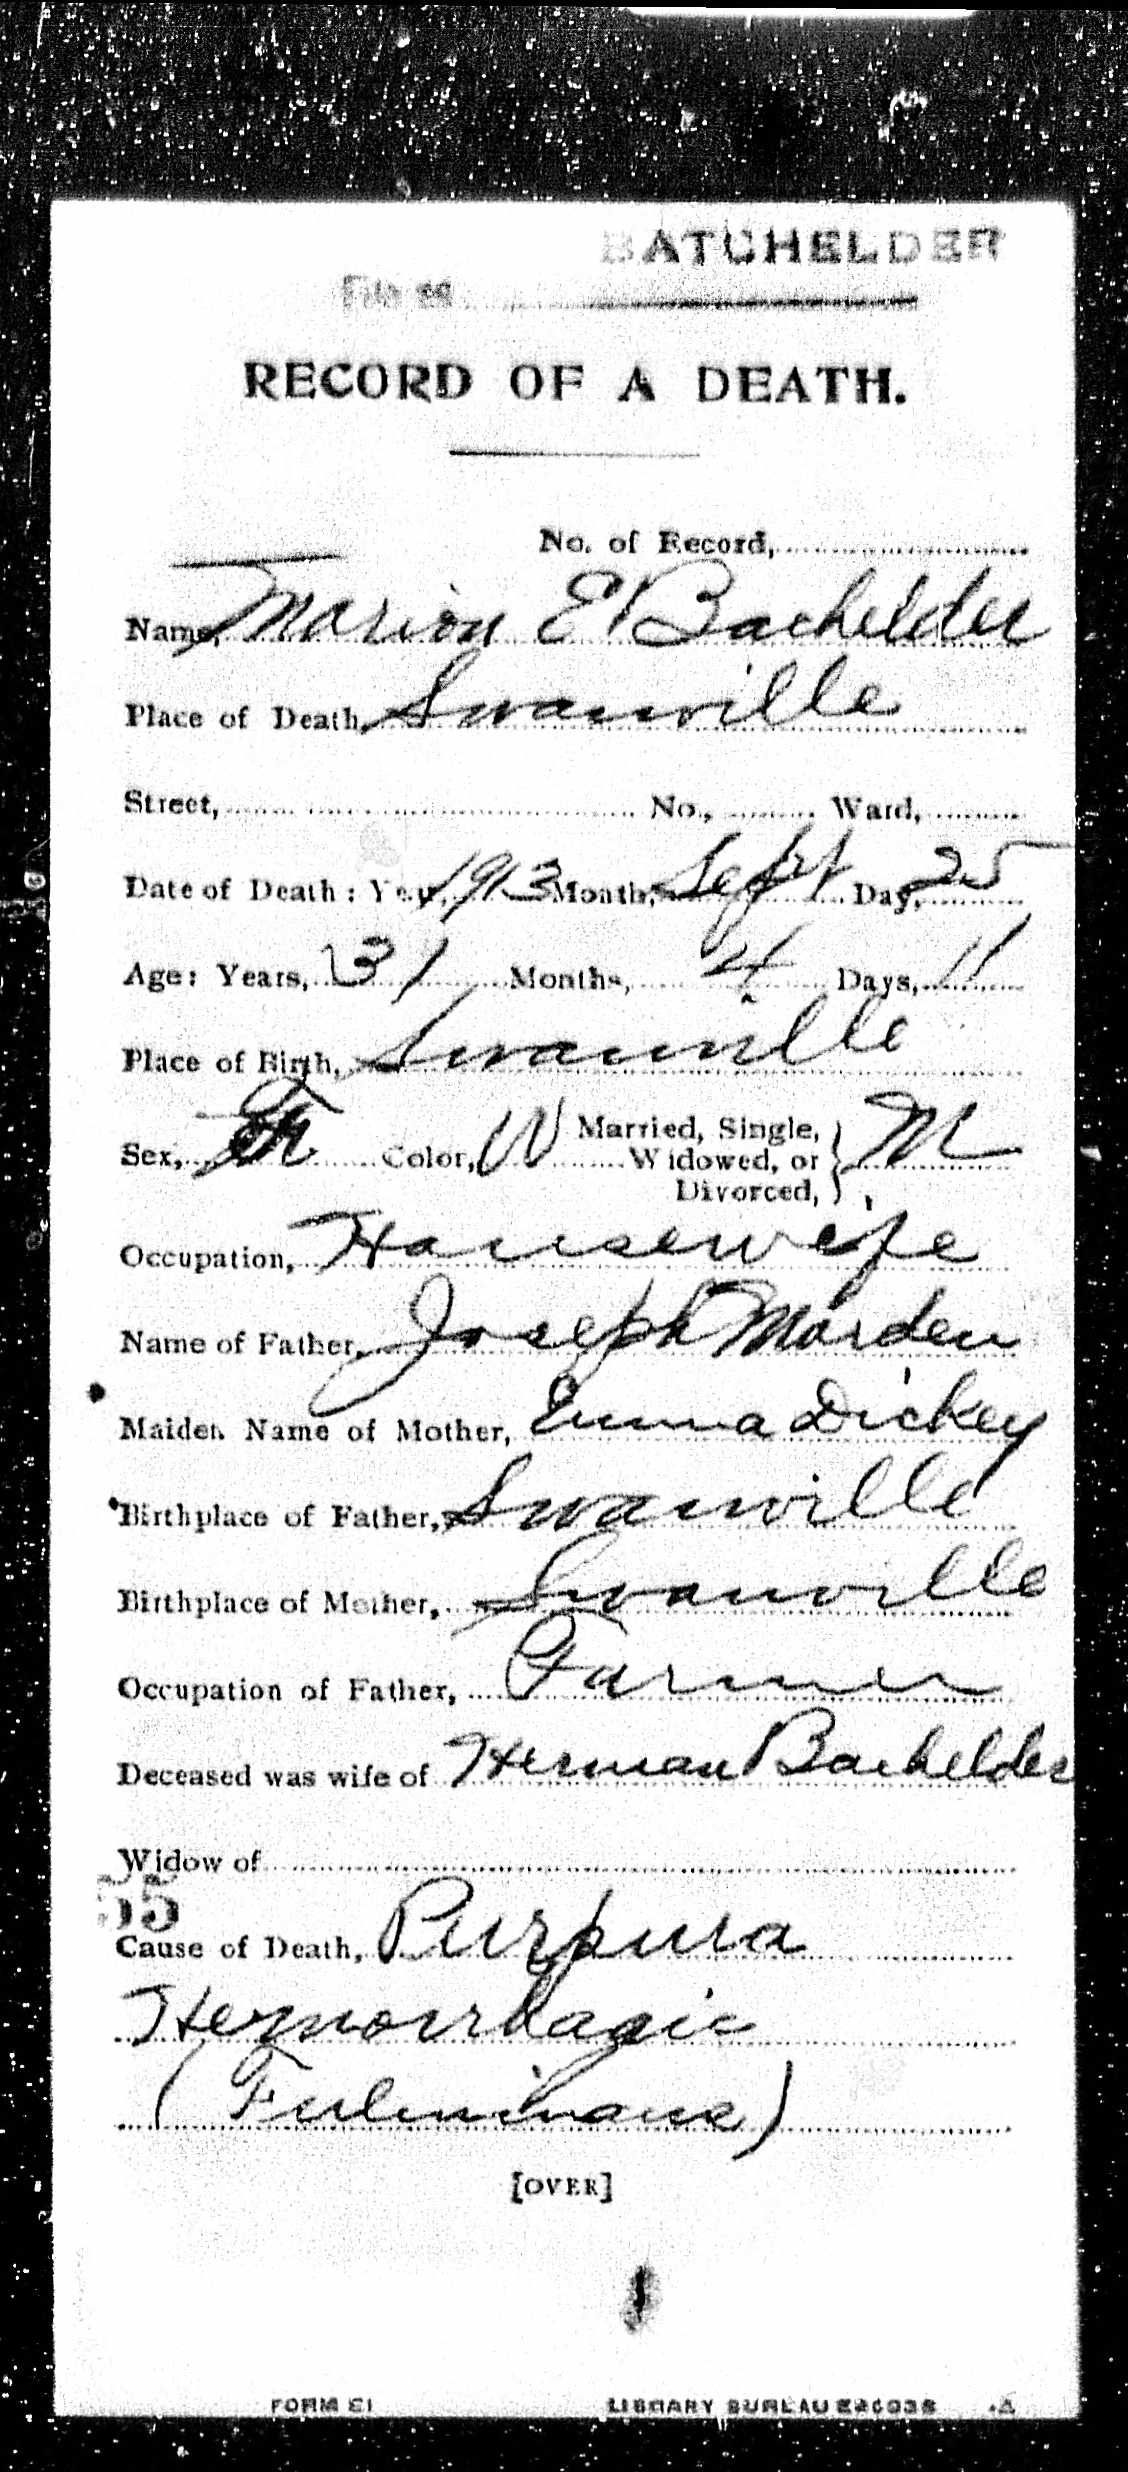 BATCHELDER
File as
RECORD OF A DEATH.
No. of Record,
Name, Marion E Bachelder
Place of Death, Swanville
Street, No., Ward,
Date of Death: Year, 1913 Month, Sept Day, 25
Age: Years, 31 Months, 4 Days, 11
Place of Birth, Swanville
Sex, Color, W Married, Single, Widowed, or Divorced, } M
Occupation, Housewife
Name of Father, Joseph Marden
Maiden Name of Mother, Emma Dickey
Birthplace of Father, Swanville
Birthplace of Mother, Swanville
Occupation of Father, Farmer
Deceased was wife of Herman Bachelder
Widow of
55
Cause of Death, Purpura
Hemorrhagic
(Fulminans)
[OVER]
FORM E1 LIBRARY BUREAU